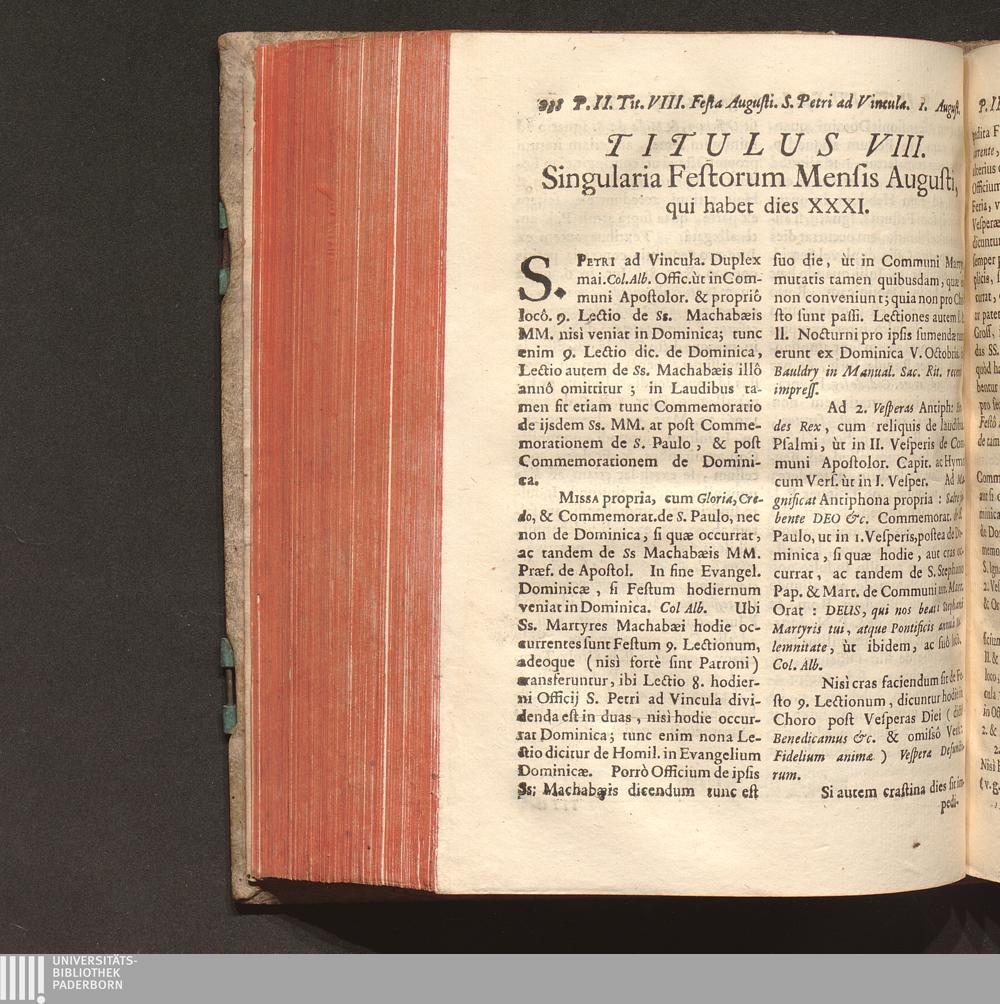 338 P. II. Tit. VIII. Festa Augusti. S. Petri ad Vincula. 1. August.
TITULUS VIII.
Singularia Festorum Mensis Augusti,
qui habet dies XXXI.
S. PETRI ad Vincula. Duplex
mai. Col. Alb. Offic. ùt in Com-
muni Apostolor. & propriô
locô. 9. Lectio de Ss. Machabæis
MM. nisi veniat in Dominica; tunc
enim 9. Lectio dic. de Dominica,
Lectio autem de Ss. Machabæis illô
annô omittitur; in Laudibus ta-
men fit etiam tunc Commemoratio
de ijsdem Ss. MM. at post Comme-
morationem de S. Paulo, & post
Commemorationem de Domini-
ca.
MISSA propria, cum Gloria, Cre-
do, & Commemorat. de S. Paulo, nec
non de Dominica, si quæ occurrat,
ac tandem de Ss Machabæis MM.
Præf. de Apostol. In fine Evangel.
Dominicæ, si Festum hodiernum
veniat in Dominica. Col Alb. Ubi
Ss. Martyres Machabæi hodie oc-
currentes sunt Festum 9. Lectionum,
adeoque (nisi fortè sint Patroni)
transferuntur, ibi Lectio 8. hodier-
ni Officij S. Petri ad Vincula divi-
denda est in duas, nisi hodie occur-
rat Dominica; tunc enim nona Le-
ctio dicitur de Homil. in Evangelium
Dominicæ. Porrò Officium de ipsis
Ss. Machabæis dicendum tunc est
suo die, ùt in Communi Martyr.
mutatis tamen quibusdam, quæ
non conveniunt; quia non pro Chri-
sto sunt passi. Lectiones autem I. &
II. Nocturni pro ipsis sumendæ
erunt ex Dominica V. Octobris.
Bauldry in Manual. Sac. Rit. recent
impress.
Ad 2. Vesperas Antiph:
des Rex, cum reliquis de laudibus.
Psalmi, ùt in II. Vesperis de Com-
muni Apostolor. Capit. ac Hymn
cum Vers. ùt in I. Vesper. Ad Ma-
gnificat Antiphona propria: Solve
bente DEO &c. Commemorat. de S.
Paulo, ut in 1. Vesperis, postea de Do-
minica, si quæ hodie, aut cras oc-
currat, ac tandem de S. Stephano
Pap. & Mart. de Communi un. Mart.
Orat: DEUS, qui nos beati Stephani
Martyris tui, atque Pontificis annuâ so-
lemnitate, ùt ibidem, ac suô locô.
Col. Alb.
Nisi cras faciendum sit de Fe-
sto 9. Lectionum, dicuntur hodie in
Choro post Vesperas Diei (dictô
Benedicamus &c. & omissô Vers:
Fidelium animæ) Vesperæ Defuncto-
rum.
Si autem crastina dies sit im-
pedi-
UNIVERSITÄTS-
BIBLIOTHEK
PADERBORN